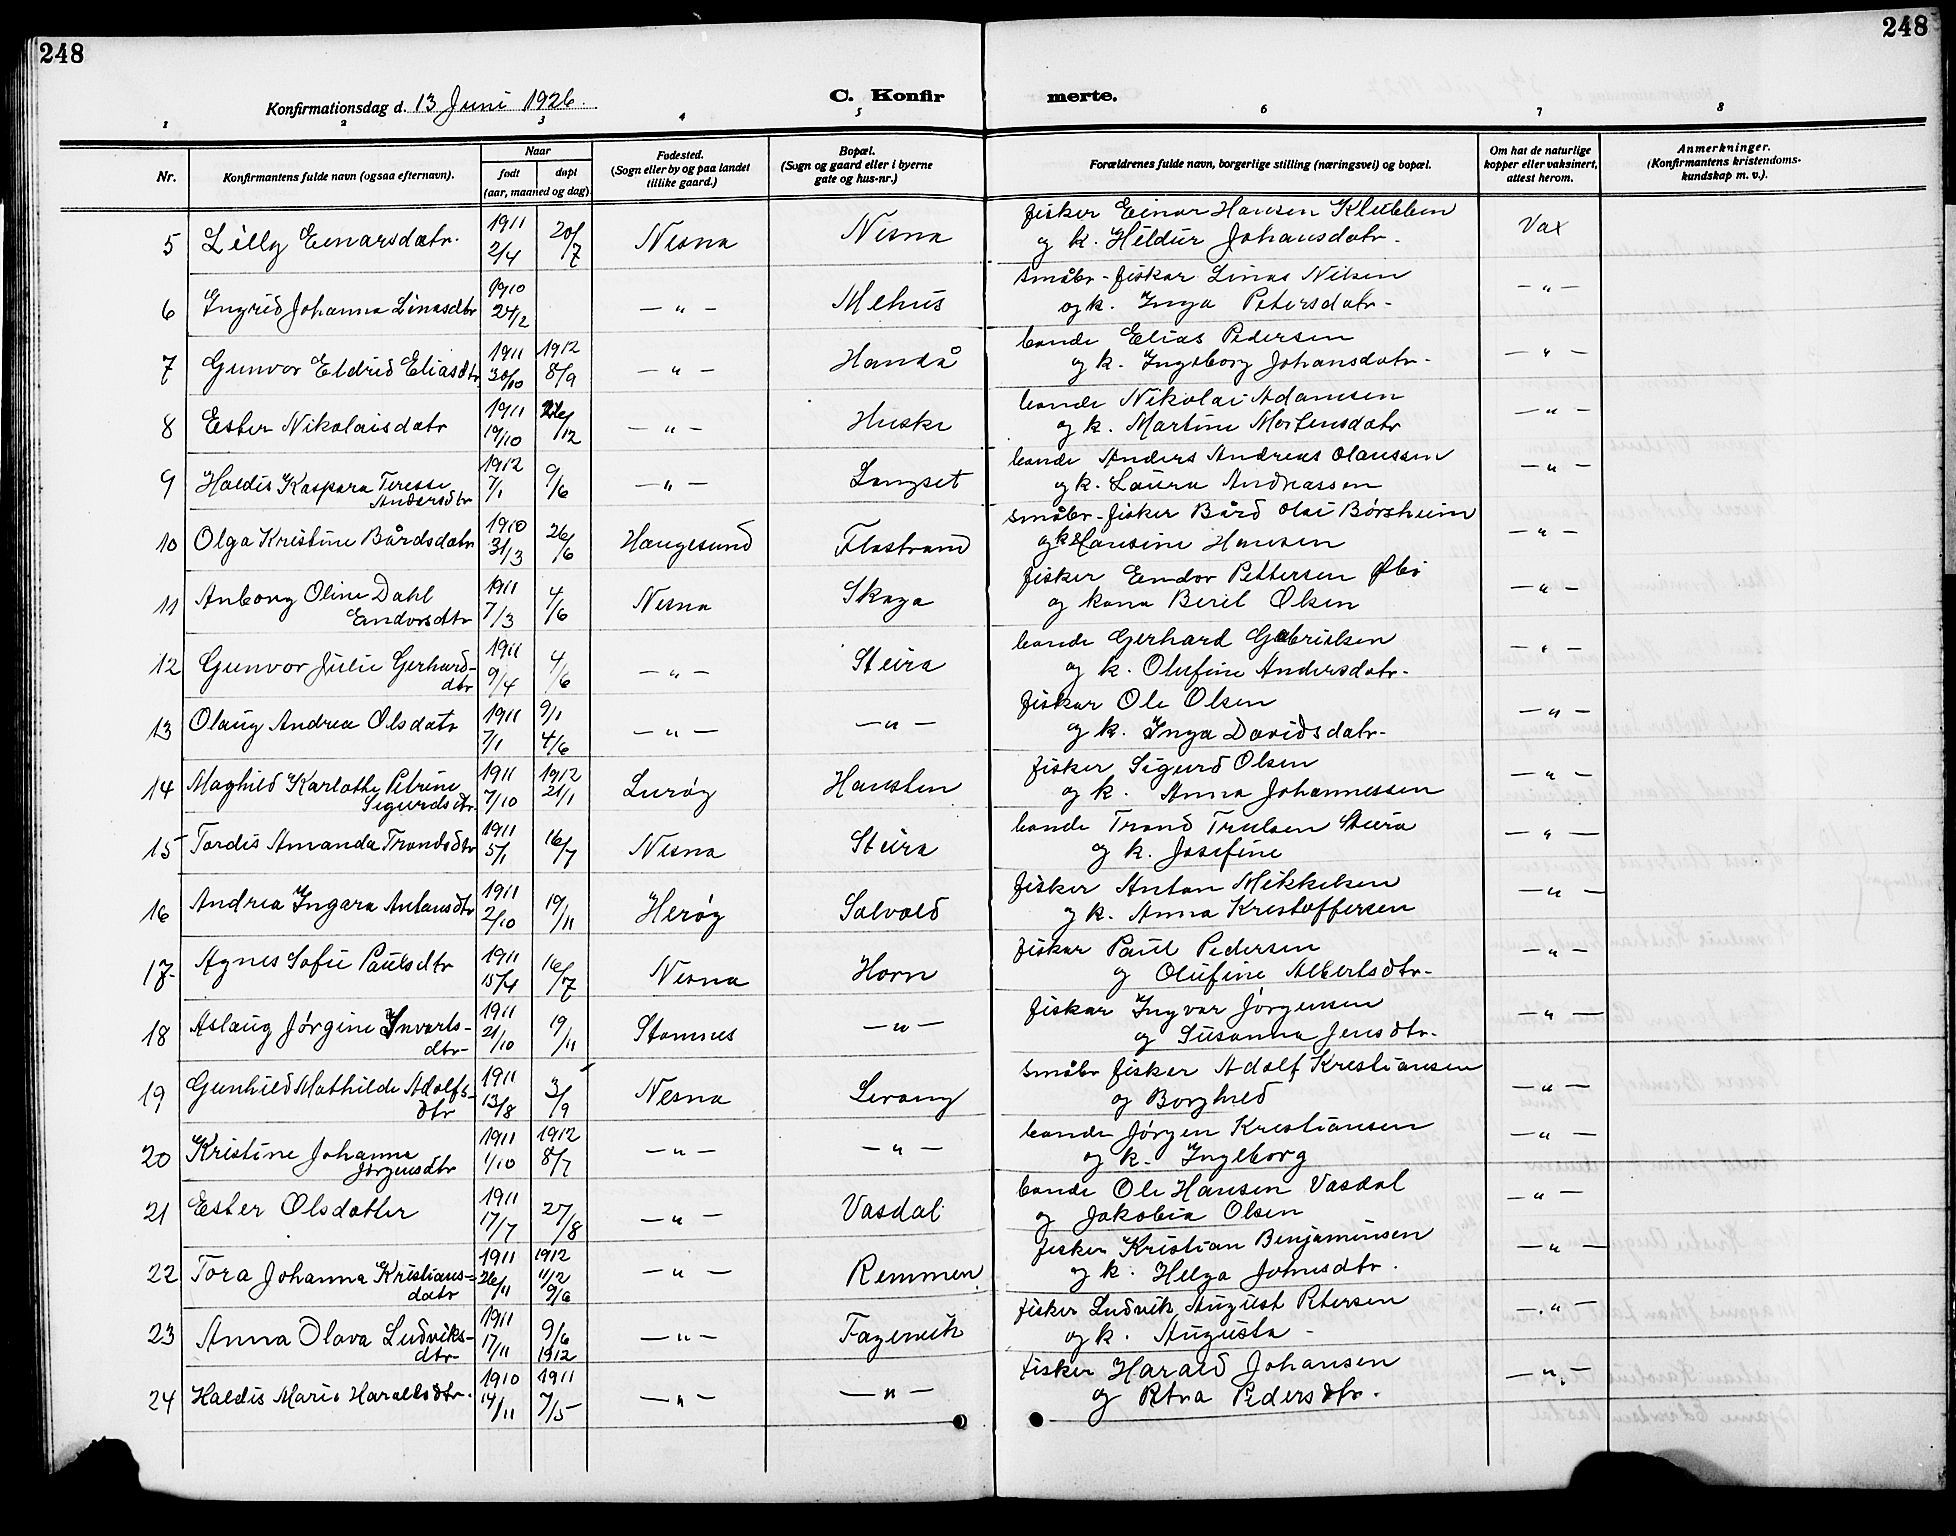 248
248
Konfirmationsdag d. 13 Juni 1926.
C. Konfirmerte.
1 2 3 4 5 6 7 8
Nr.
Konfirmantens fulde navn (ogsaa efternavn).
Naar
født
døpt
(aar, maaned og dag)
Fødested.
(Sogn eller by og paa landet
tillike gaard.)
Bopæl.
(Sogn og gaard eller i byerne
gate og hus-nr.)
Forældrenes fulde navn, borgerlige stilling (næringsvei) og bopæl.
Om hat de naturlige
kopper eller vaksinert,
attest herom.
Anmerkninger.
(Konfirmantens kristendoms-
kundskap m. v.).
5 Lilly Einarsdatr. 1911 2/4 20/7 Nesna Nesna fisker Einar Hansen Klubben Vax
og k. Hildur Johansdatr.
6 Ingrid Johanna Linasdtr 1910 24/2 —"— Mehus småbr-fisker Linas Nilsen —"—
og k. Inga Petersdatr-
7 Gunvor Eldrid Eliasdtr 1911 30/10 1912 8/9 —"— Handå bonde Elias Pedersen —"—
og k. Ingeborg Johansdatr-
8 Ester Nikolaisdatr 1911 19/10 26/12 —"— Huske bonde Nikolai Adamsen —"—
og k. Martine Mortensdatr
9 Haldis Kaspara Terese 1912 7/1 9/6 —"— Langset bonde Anders Andreas Olaussen —"—
Andersdtr og k. Laura Andreassen
10 Olga Kristine Bårdsdatr 1910 31/3 26/6 Haugesund Flostrand småbr-fisker Bård Olai Børsheim —"—
og k Hansine Hansen
11 Anborg Oline Dahl 1911 7/3 4/6 Nesna Skaga fisker Endor Pettersen —"—
Endorsdtr og kona Beril Olsen
12 Gunvor Julie Gerhard- 1911 9/4 4/6 —"— Steira bonde Gerhard Gabrielsen —"—
dtr og k. Olufine Andersdatr-
13 Olaug Andrea Olsdatr 1911 7/1 9/1 4/6 —"— —"— fisker Ole Olsen —"—
og k. Inga Davidsdatr-
14 Maghild Karlotte Petrine 1911 7/10 1912 21/1 Lurøy Hausten fisker Sigurd Olsen —"—
Sigurdsdtr og k. Anna Johannessen
15 Tordis Amanda Trondsdtr 1911 5/1 16/7 Nesna Steira bonde Trond Trulsen Steira —"—
og k. Josefine
16 Andrea Ingara Antonsdtr 1911 2/10 19/11 Herøy Solvold fisker Anton Mikkelsen —"—
og k. Anna Kristoffersen
17- Agnes Sofie Paulsdtr 1911 15/4 16/7 Nesna Horn fisker Paul Pedersen —"—
og Olufine Albertsdtr-
18 Aslaug Jørgine Invarts- 1911 21/10 19/11 Stamnes —"— fisker Ingvar Jørgensen —"—
dtr- og Susanna Jensdtr.
19 Gunhild Mathilde Adolfs- 1911 13/8 3/9 Nesna Levang småbr fisker Adolf Kristiansen —"—
dtr og Borghild
20 Kristine Johanna 1911 1/10 1912 8/7 —"— —"— bonde Jørgen Kristiansen —"—
Jørgensdtr og k. Ingeborg
21 Ester Olsdatter 1911 17/7 27/8 —"— Vasdal bonde Ole Hansen Vasdal —"—
og Jakobia Olsen
22 Tora Johanna Kristians- 1911 26/11 1912 11/2 9/6 —"— Remmen fisker Kristian Benjaminsen —"—
datr og k. Helga Johnsdtr.
23 Anna Olava Ludviks- 1911 17/11 9/6 1912 —"— Fagervik fisker Ludvik August Petersen —"—
dtr- og k. Augusta -
24 Haldis Marie Haraldsdtr. 1910 14/11 1911 7/15 —"— —"— fisker Harald Johansen —"—
og Petra Pedersdtr.